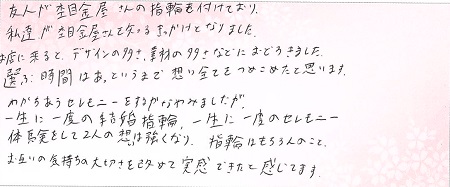 友人が杢目金屋さんの指輪を付けており、
私達が杢目金屋さんを知るきっかけとなりました。
お店に来ると、デザインの多さ、素材の多さなどにおどろきました。
選ぶ時間はあっというまで想い全てをつめこめたと思います。
わかちあうセレモニーをするかなやみましたが、
一生に一度の結婚指輪、一生に一度のセレモニー
体験をして2人の想いは強くなり、指輪はもちろんのこと、
お互いの気持ちの大切さを改めて実感できたと感じてます。